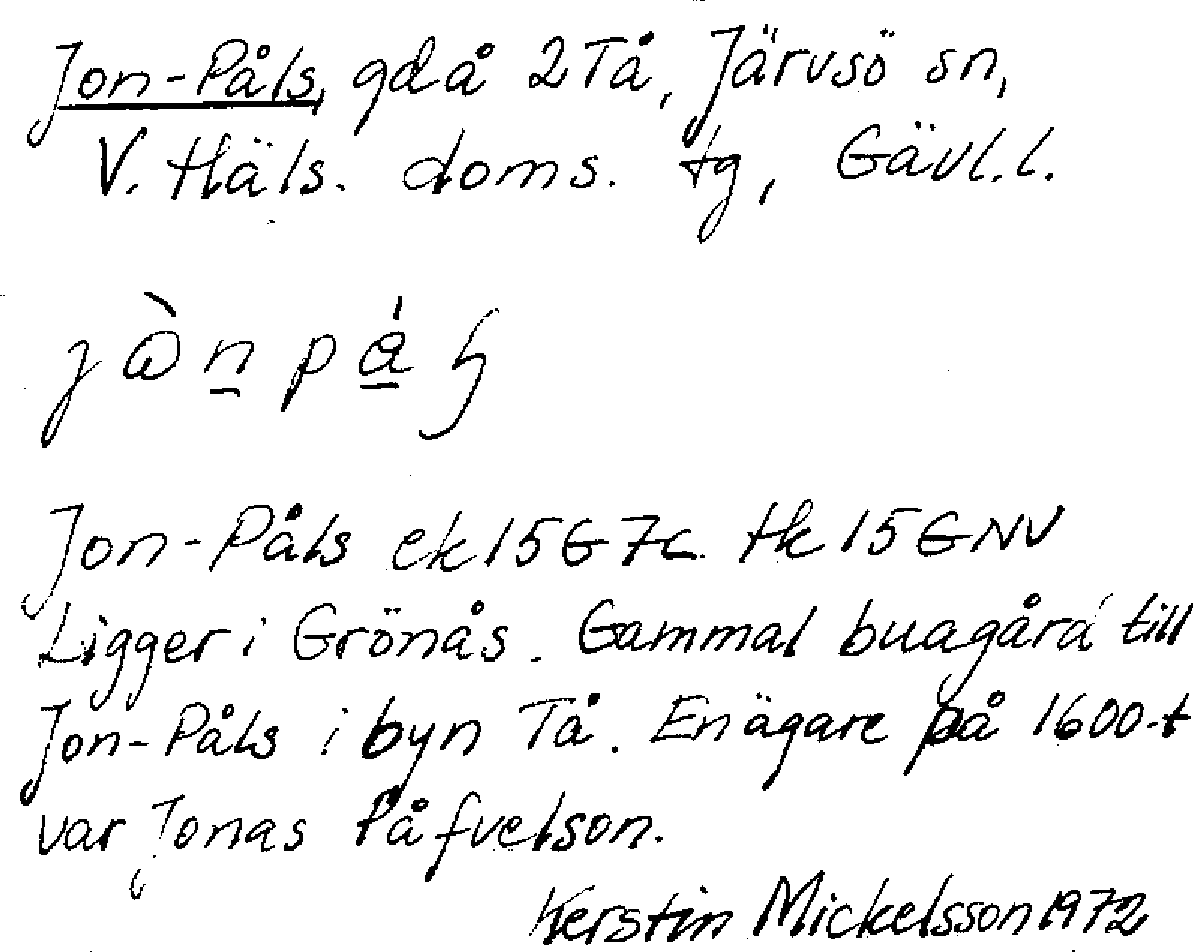 Jon-Påls, gd å 2 Tå, Järvsö sn,
V. Häls. doms. tg, Gävl.l.
Jon-Påls ek 15G7c tk 15GNV
Ligger i Grönås. Gammal buagård till
Jon-Påls i byn Tå. En ägare på 1600-t
var Jonas Påfvelson.
Kerstin Mickelsson 1972